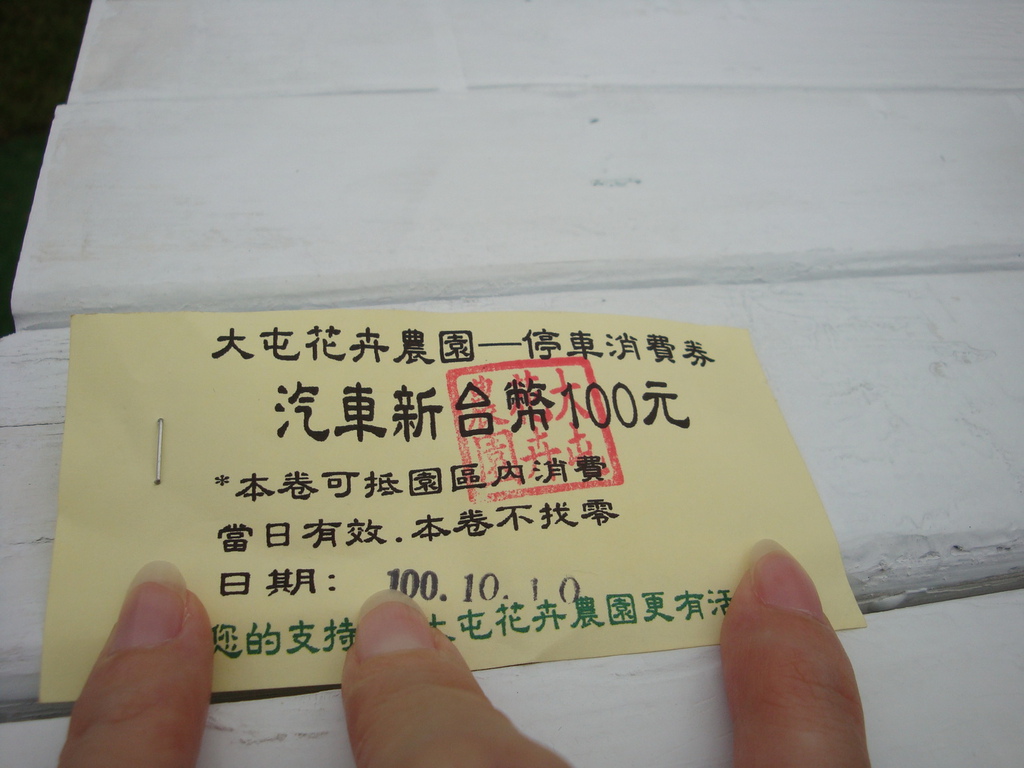 大屯花卉農園—停車消費券
汽車新台幣100元
*本卷可抵園區內消費
當日有效.本卷不找零
日期: 100.10.10
您的支持 大屯花卉農園更有活
大屯
花卉
農園